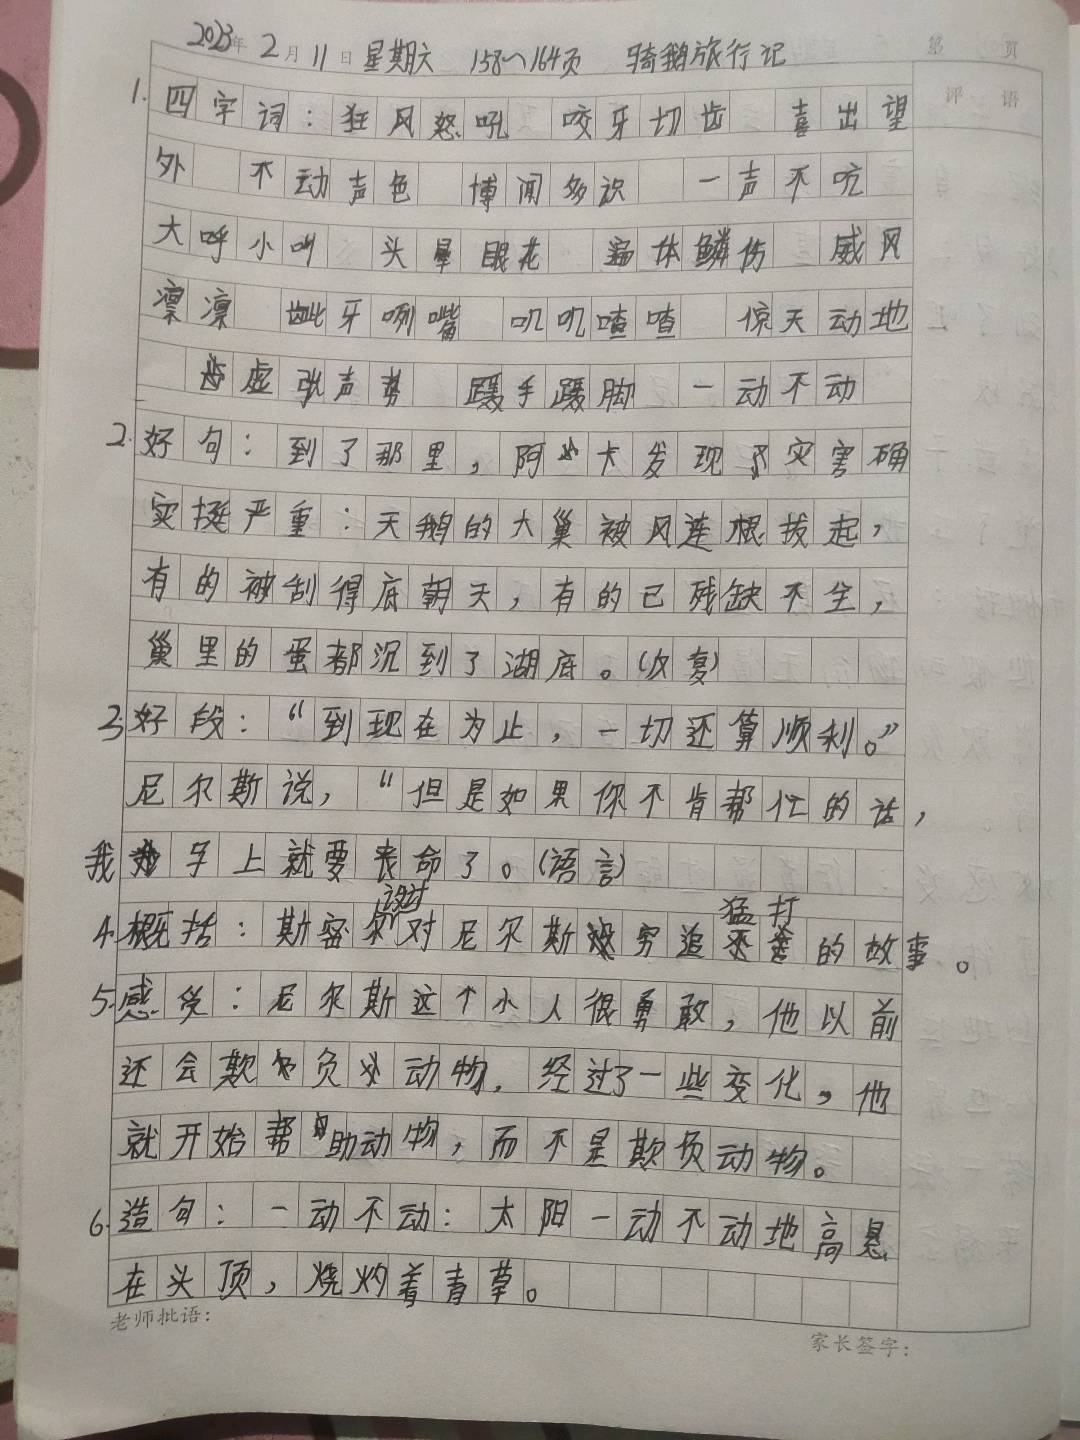 2023年2月11日 星期六 158~164页 骑鹅旅行记
第 页
评 语
1.四字词：狂风怒吼 咬牙切齿 喜出望
外 不动声色 博闻多识 一声不吭
大呼小叫 头晕眼花 遍体鳞伤 威风
凛凛 龇牙咧嘴 叽叽喳喳 惊天动地
虚张声势 蹑手蹑脚 一动不动
2.好句：到了那里，阿卡发现了灾害确
实挺严重：天鹅的大巢被风连根拔起，
有的被刮得底朝天，有的已残缺不全，
巢里的蛋都沉到了湖底。(反复)
3.好段：“到现在为止，一切还算顺利。”
尼尔斯说，“但是如果你不肯帮忙的话，
我 马上就要丧命了。(语言)
4.概括：斯密尔对尼尔斯穷追猛打的故事。
5.感受：尼尔斯这个小人很勇敢，他以前
还会欺负动物，经过了一些变化，他
就开始帮助动物，而不是欺负动物。
6.造句：一动不动：太阳一动不动地高悬
在头顶，烧灼着青草。
老师批语：
家长签字：